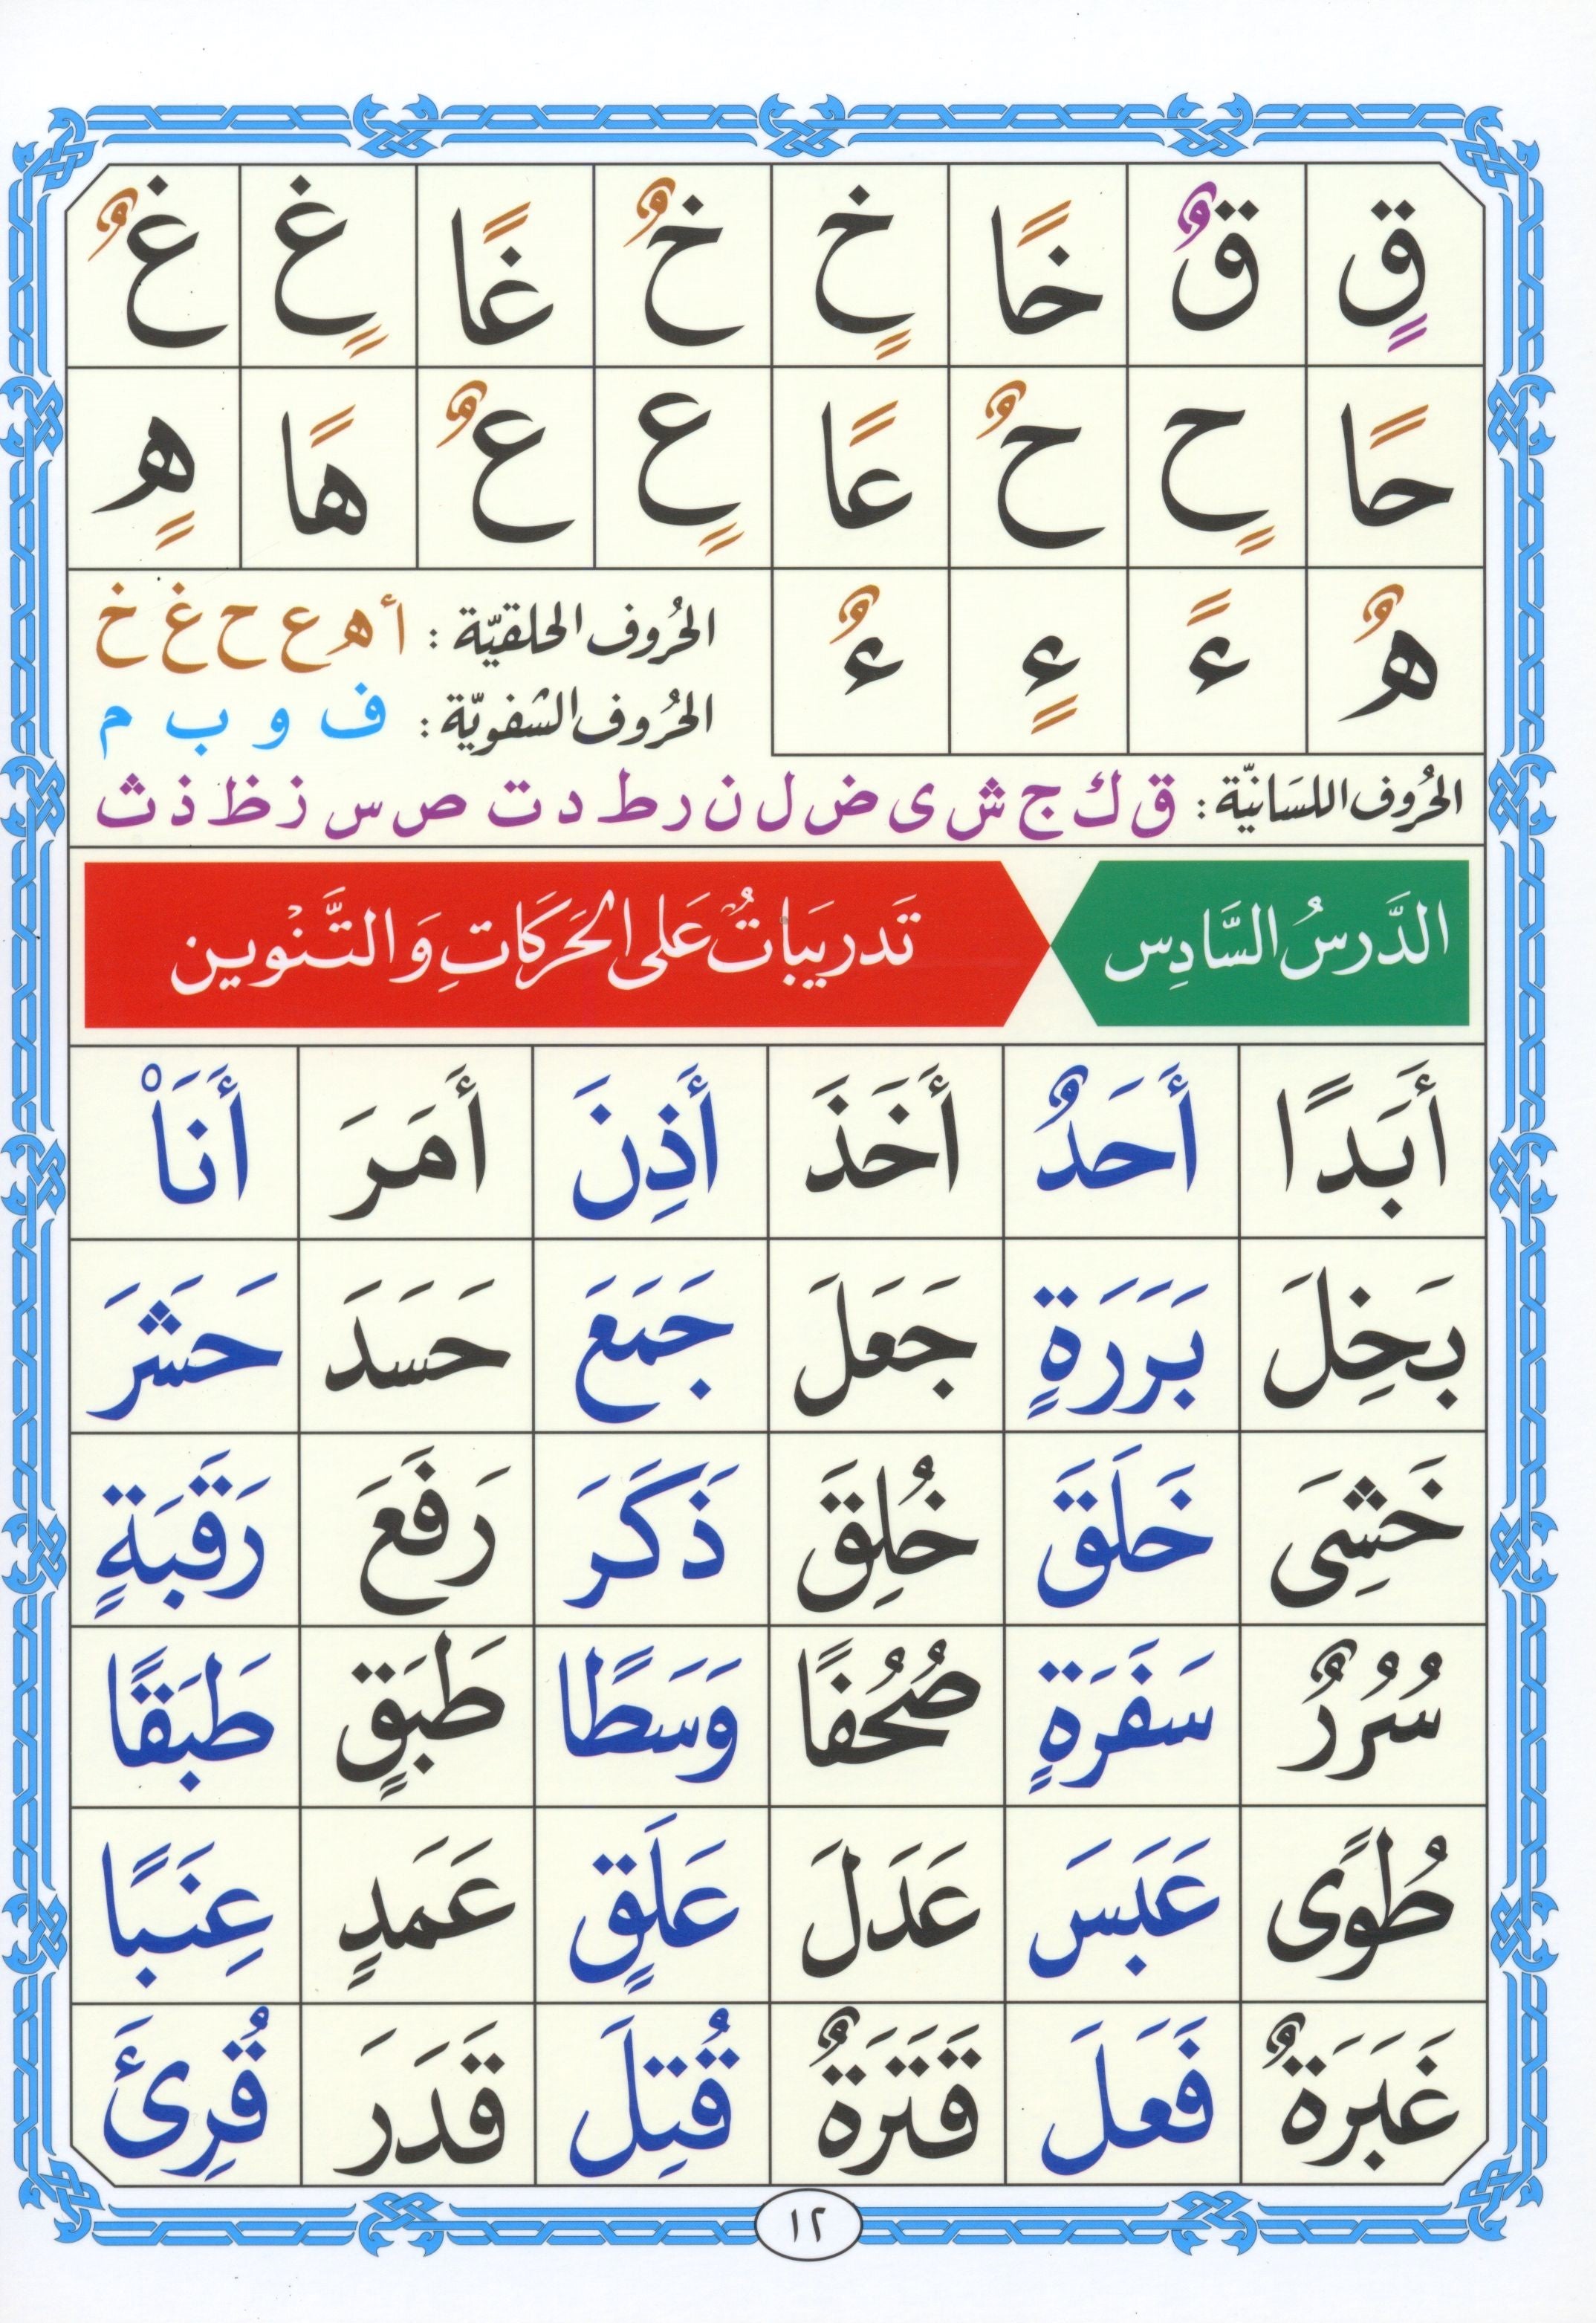 قٍ قٌ خًا خٍ خٌ غًا غٍ غٌ
حًا حٍ حٌ عًا عٍ عٌ هًا هٍ
هٌ ءً ءٍ ءٌ
الحُروف الحلقيّة : أ ه ع ح غ خ
الحُروف الشفويّة : ف و ب م
الحُروف اللسَانيّة : ق ك ج ش ى ض ل ن ر ط د ت ص س ز ظ ذ ث
الدَّرسُ السَّادِس تَدريبَاتٌ عَلى الحَرَكَاتِ وَالتَّنْوين
أَبَدًا أَحَدٌ أَخَذَ أَذِنَ أَمَرَ أَنَا۠
بَخِلَ بَرَرَةٍ جَعَلَ جَمَعَ حَسَدَ حَشَرَ
خَشِىَ خَلَقَ خُلِقَ ذَكَرَ رَفَعَ رَقَبَةٍ
سُرُرٌ سَفَرَةٍ صُحُفًا وَسَطًا طَبَقٍ طَبَقًا
طُوًى عَبَسَ عَدَلَ عَلَقٍ عَمَدٍ عِنَبًا
غَبَرَةٌ فَعَلَ قَتَرَةٌ قُتِلَ قَدَرَ قُرِئَ
١٢